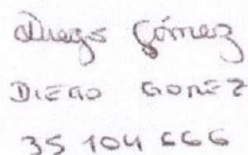 Diego Gómez
DIEGO GOMEZ
35 104 666